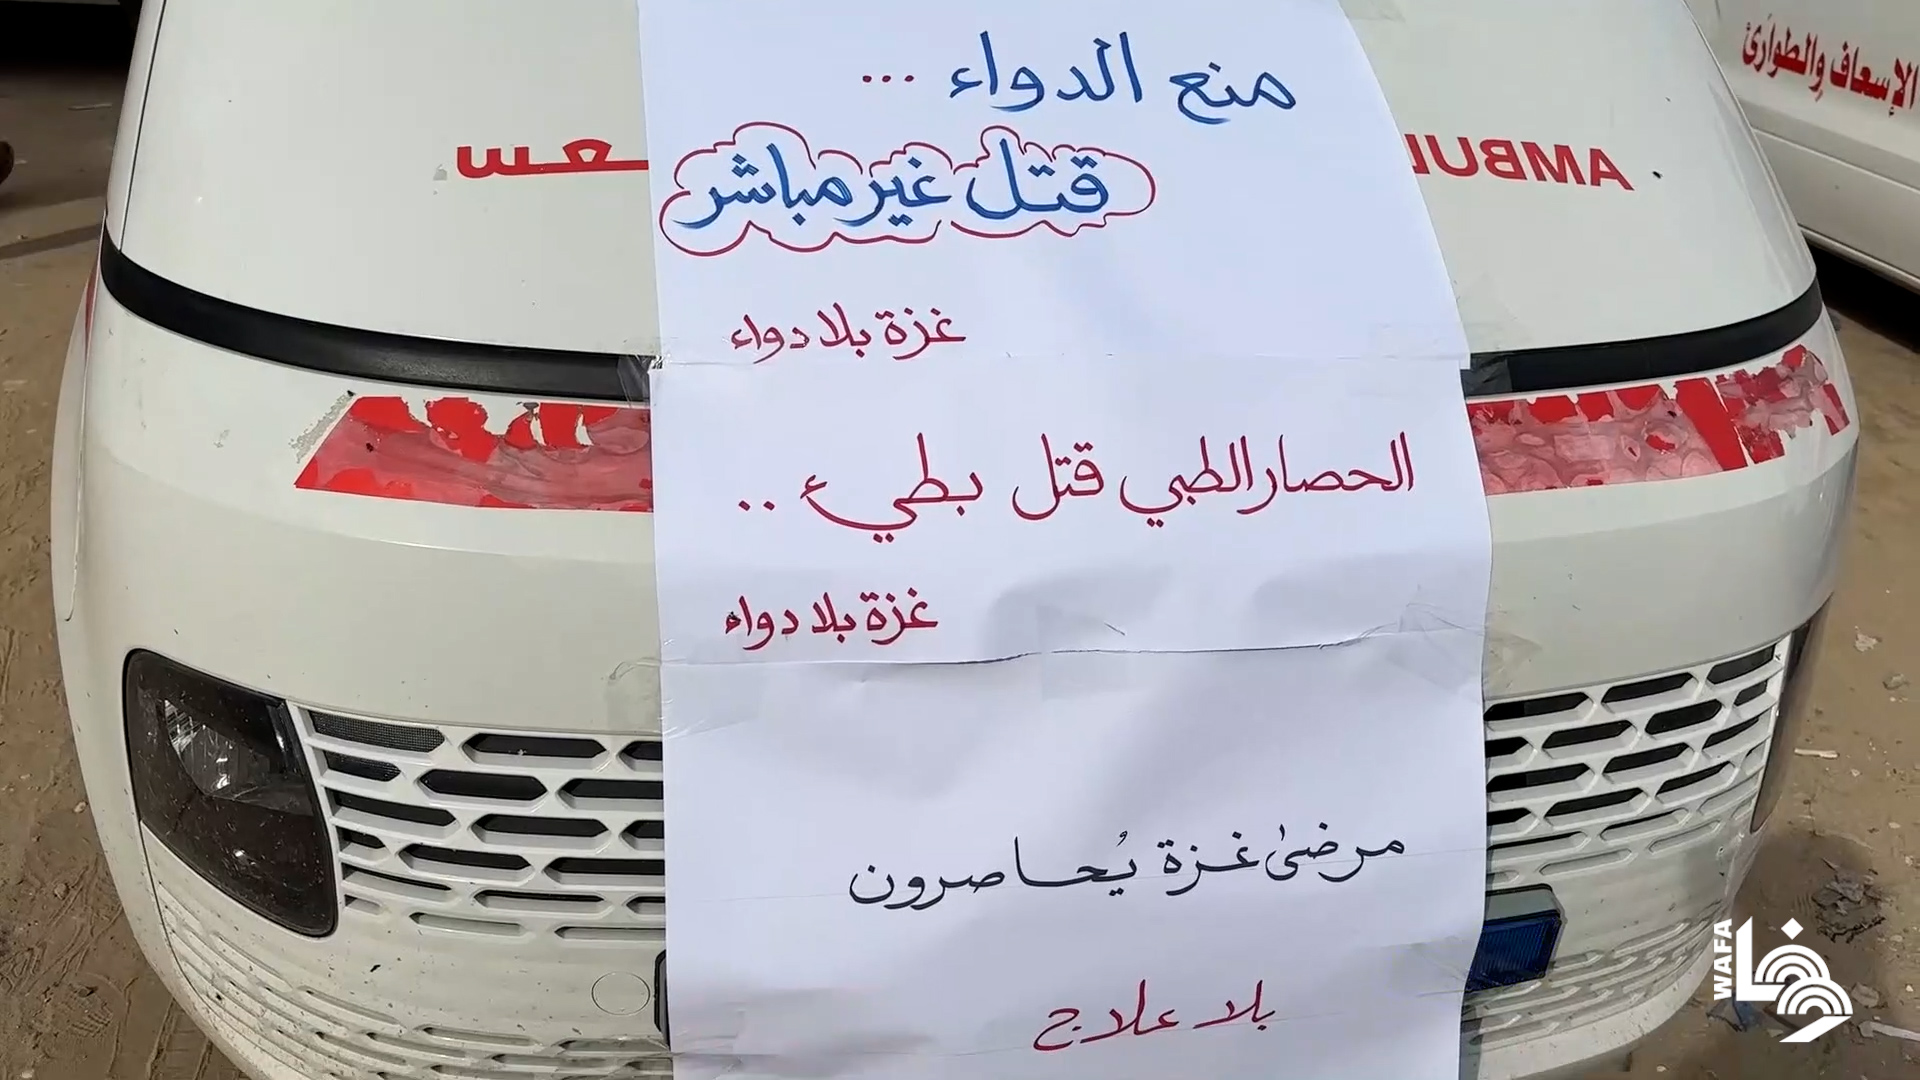 منع الدواء ...
قتل غير مباشر
غزة بلا دواء
الحصار الطبي قتل بطيء ..
غزة بلا دواء
مرضىٰ غزة يُحاصرون
بلا علاج
الإسعاف والطوارئ
WAFA
وفا